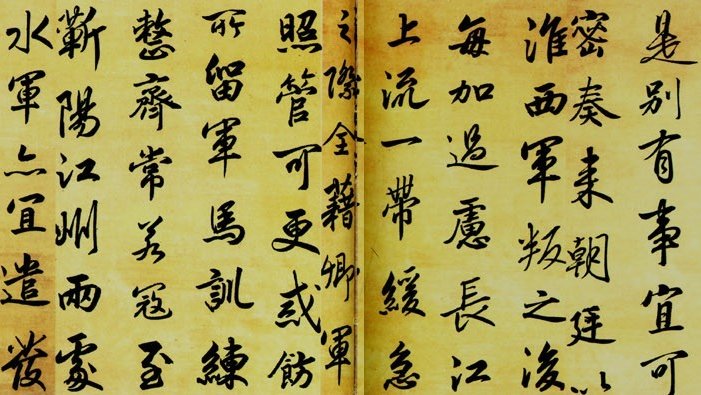 是别有事宜可
密奏来朝廷以
淮西軍叛之後
每加過慮長江
上流一帶緩急
之際全藉卿軍
照管可更戒飭
所留軍馬訓練
整齊常若寇至
蘄陽江州兩處
水軍亦宜遣發